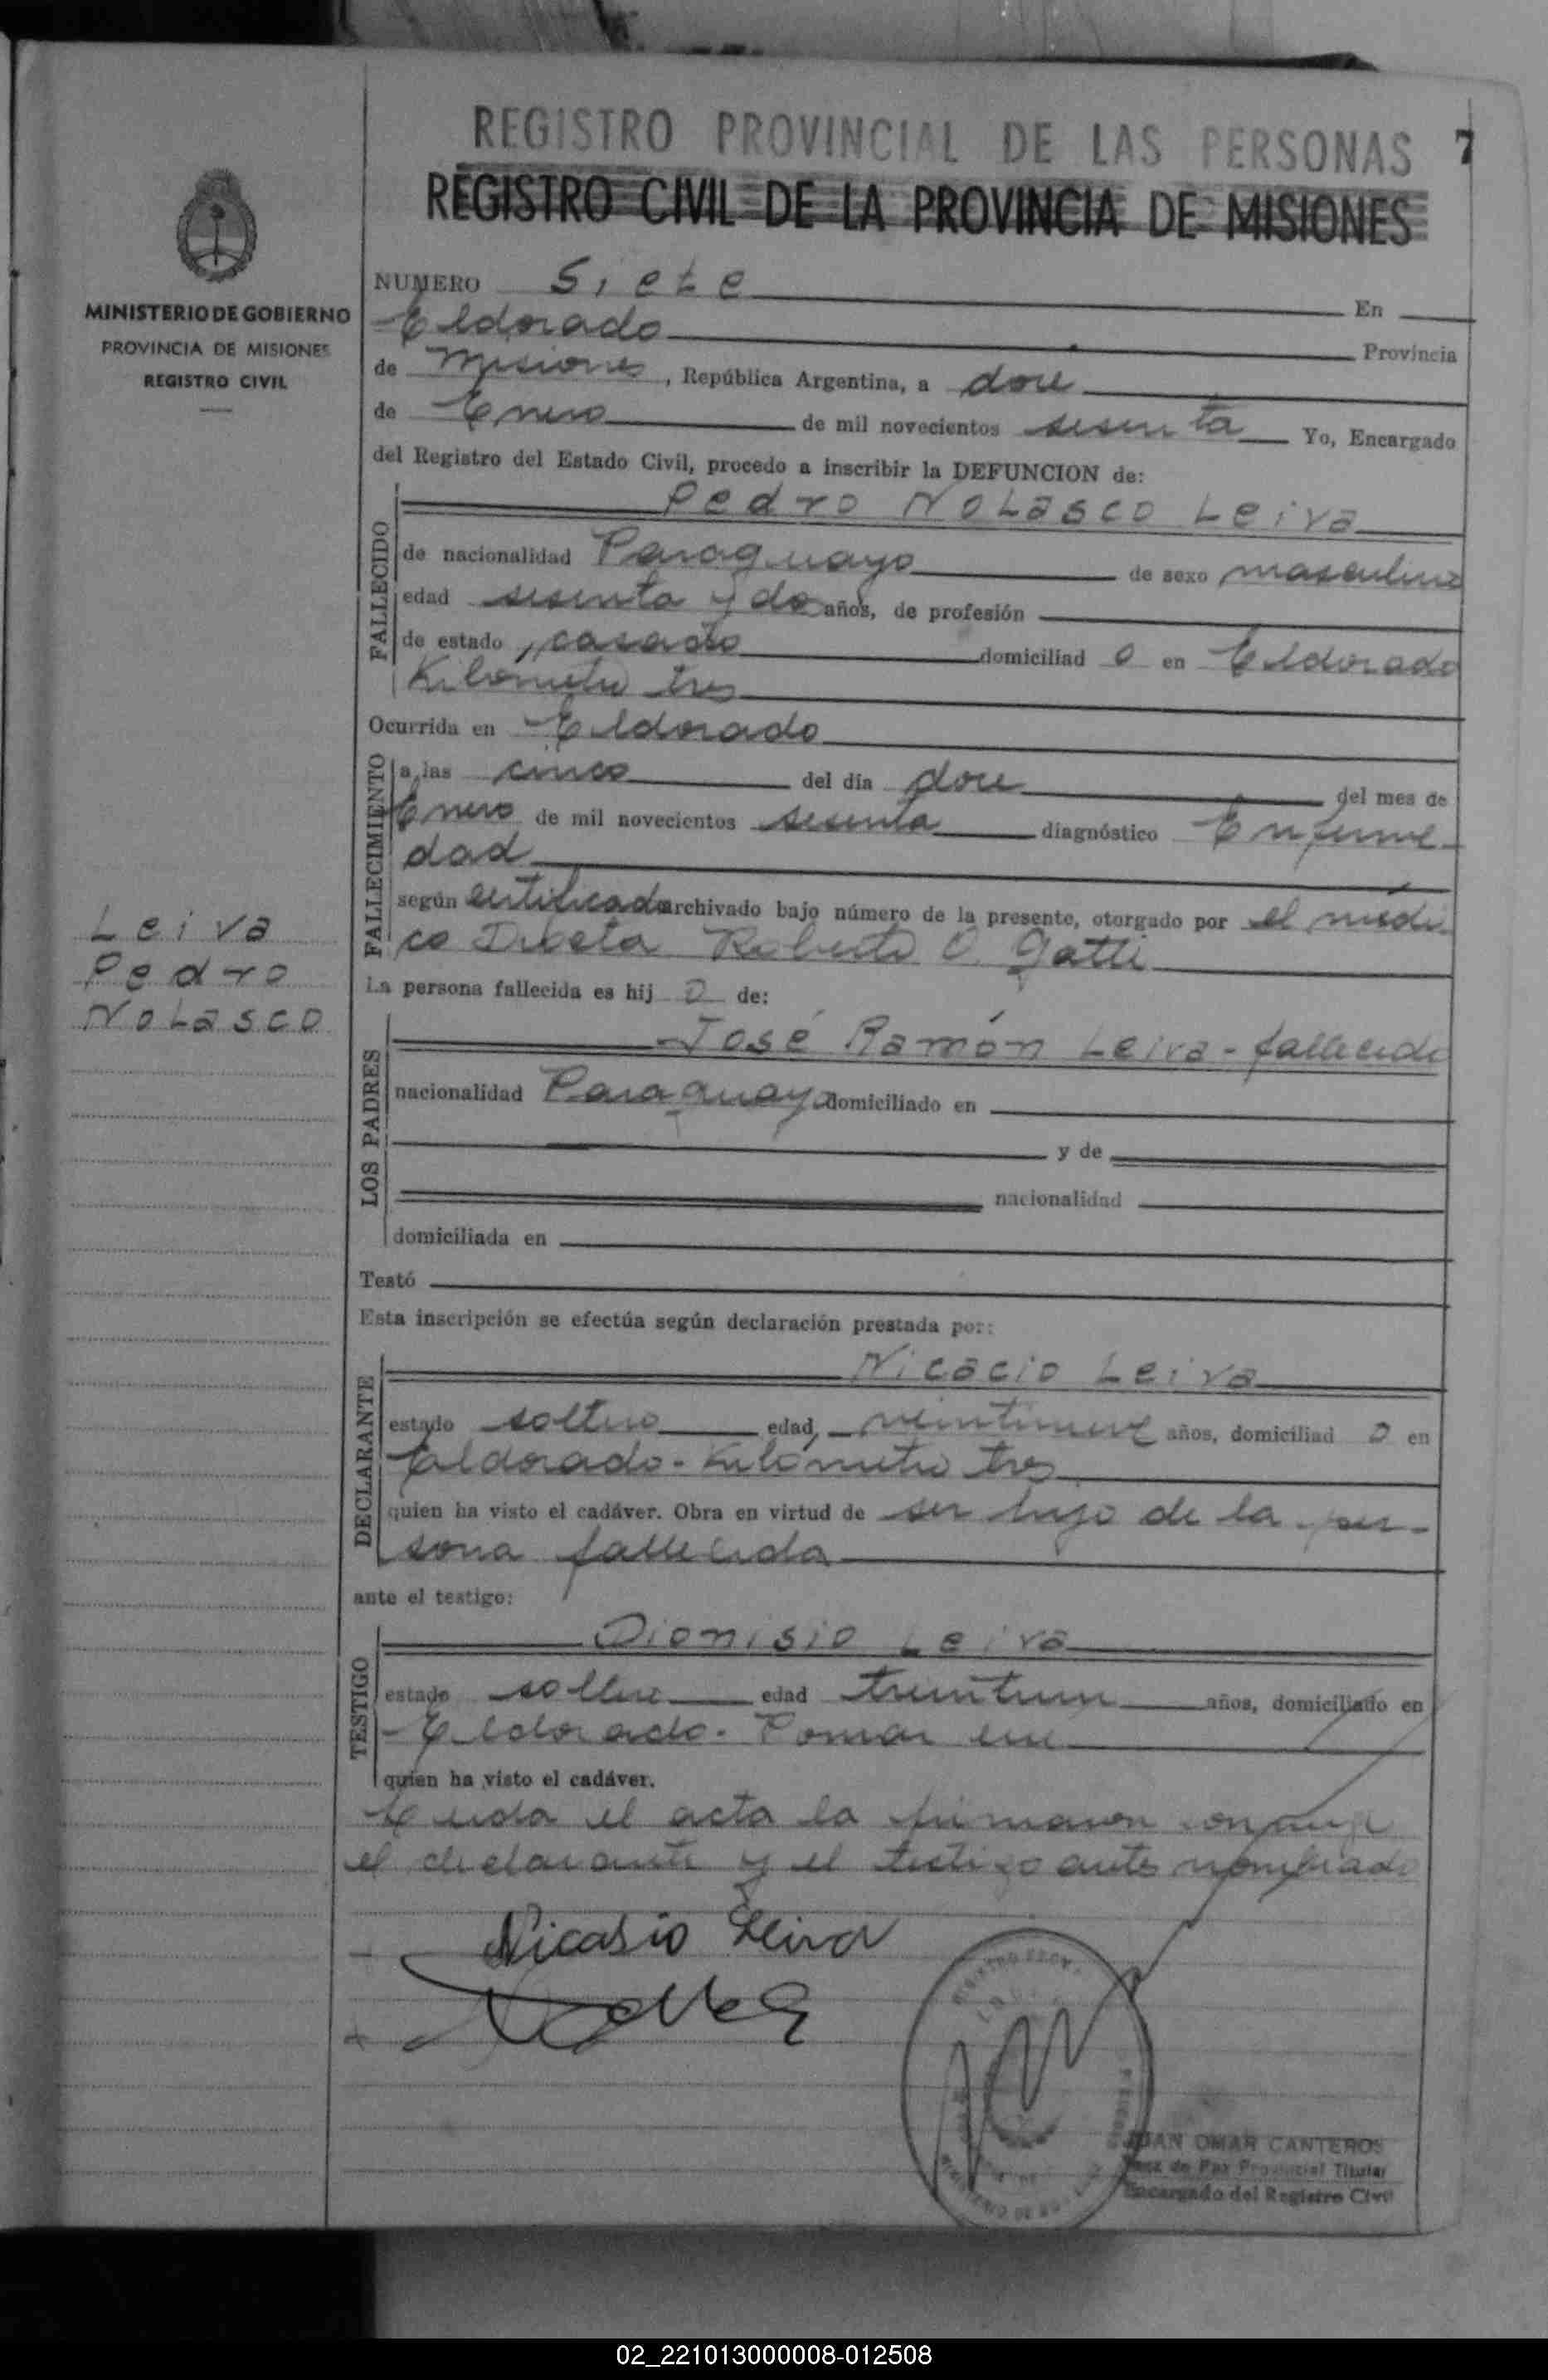 REGISTRO PROVINCIAL DE LAS PERSONAS 7
REGISTRO CIVIL DE LA PROVINCIA DE MISIONES
MINISTERIO DE GOBIERNO
PROVINCIA DE MISIONES
REGISTRO CIVIL
NUMERO Siete En
Eldorado Provincia
de Misiones, República Argentina, a doce
de Enero de mil novecientos sesenta Yo, Encargado
del Registro del Estado Civil, procedo a inscribir la DEFUNCION de:
FALLECIDO
Pedro Nolasco Leiva
de nacionalidad Paraguayo de sexo masculino
edad sesenta y dos años, de profesión
de estado casado domiciliad o en Eldorado
Kilometro tres
Ocurrida en Eldorado
FALLECIMIENTO
a las cinco del día doce del mes de
Enero de mil novecientos sesenta diagnóstico Enferme
dad
según certificado archivado bajo número de la presente, otorgado por el médi
co Roberto O. Gatti
La persona fallecida es hij o de:
LOS PADRES
José Ramón Leiva - fallecido
nacionalidad Paraguayo domiciliado en
y de
nacionalidad
domiciliada en
Testó
Esta inscripción se efectúa según declaración prestada por:
DECLARANTE
Nicacio Leiva
estado soltero edad, veintinueve años, domiciliad o en
Eldorado - Kilómetro tres
quien ha visto el cadáver. Obra en virtud de ser hijo de la per-
sona fallecida
ante el testigo:
TESTIGO
Dionisio Leiva
estado soltero edad treintiun años, domiciliado en
Eldorado.
quien ha visto el cadáver.
Leida el acta la firmaron conmigo
el declarante y el testigo antes nombrado
Nicasio Leiva
JUAN OMAR CANTEROS
Juez de Paz Provincial Titular
Encargado del Registro Civil
Leiva
Pedro
Nolasco
02_221013000008-012508